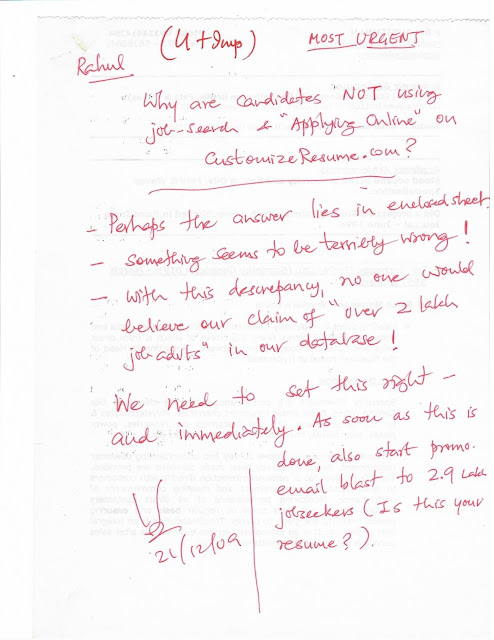 (U + Imp)
MOST URGENT
Rahul
Why are candidates NOT using
job-search & "Applying Online" on
CustomizeResume.com?
- Perhaps the answer lies in enclosed sheet,
- Something seems to be terribly wrong!
- With this descrepancy, no one would
believe our claim of "over 2 lakh
job advts" in our database!
We need to set this right -
and immediately. As soon as this is
done, also start promo.
email blast to 2.9 Lakh
jobseekers (Is this your
resume?).
21/12/09